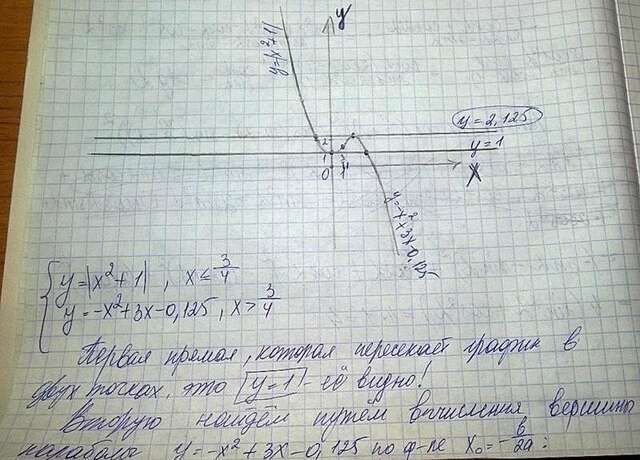 y
y=|x²+1|
y=2,125
y=1
2
1
0
X
y=-x²+3x-0,125
y=|x²+1| , x≤3/4
y=-x²+3x-0,125, x>3/4
Первая прямая, которая пересекает график в
двух точках, это y=1 - её видно!
Вторую найдём путём вычисления вершины
параболы y=-x²+3x-0,125 по ф-ле x₀=-в/2a: